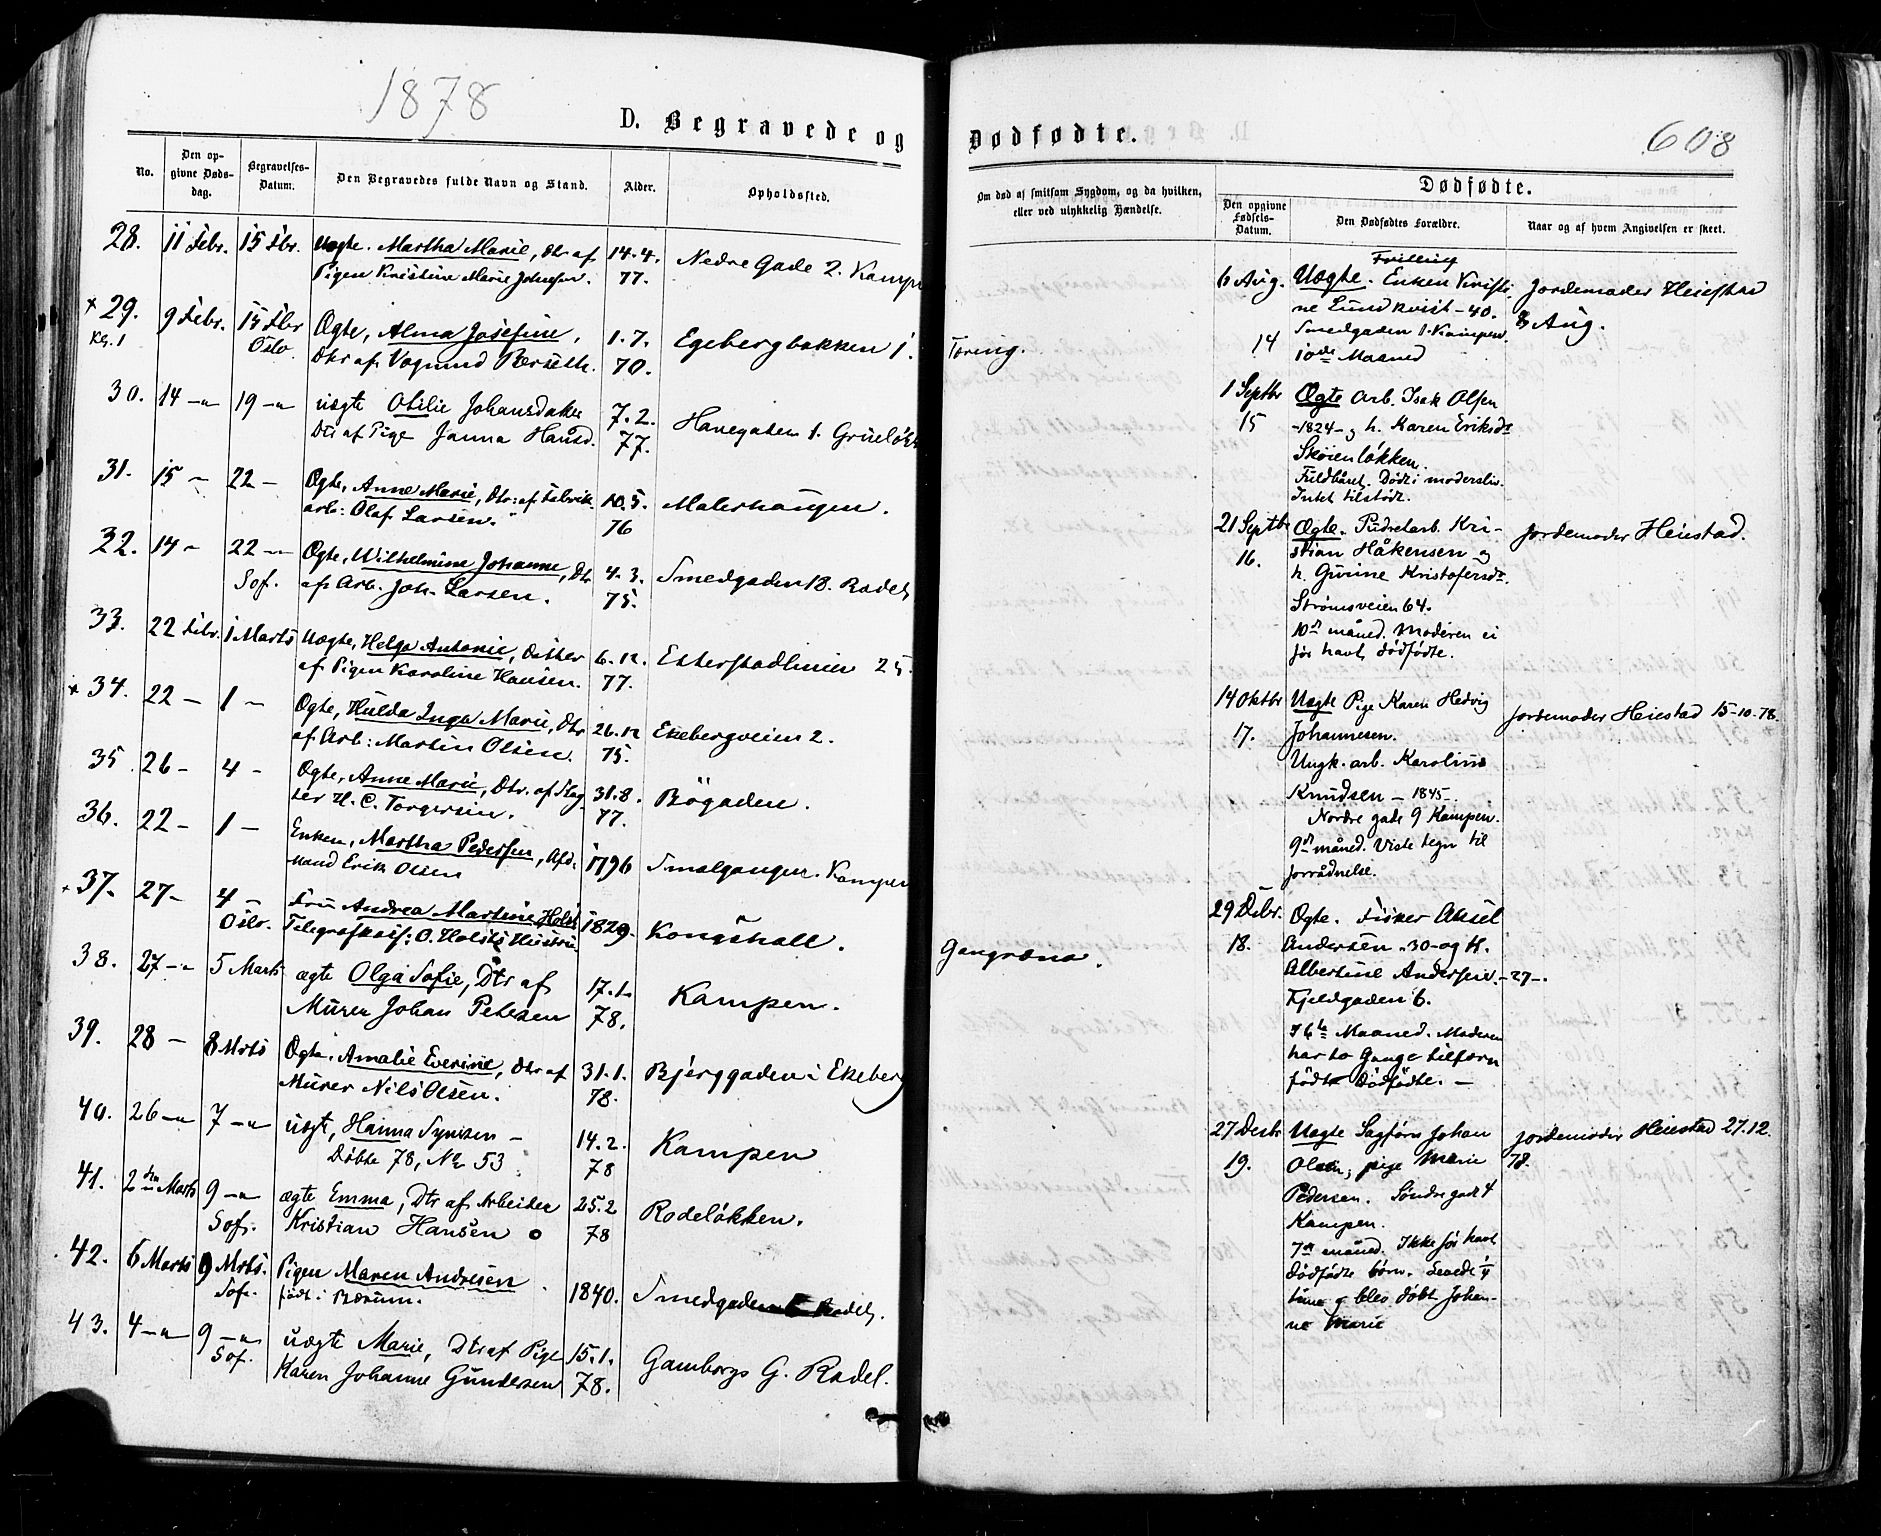 1878
D. Begravede og
No.
Den op-
givne Døds-
dag.
Begravelses-
Datum.
Den Begravedes fulde Navn og Stand.
Alder.
Opholdssted.
28. 11 Febr. 15 Fbr. Uægte. Martha Marie, Dtr af 14.4. Nedre Gade 2. Kampen
Pigen Kristine Marie Johnsen. 77.
× 29. 9 Febr. 15 Fbr Ægte, Alma Josefine, 1.7. Egebergbakken 1.
Kl. 1 Oslo Dtr af Vogmand 70.
30. 14 — 19 — uægte Otilie Johansdatter 7.2. Havegaten 1. Grüneløkk
Dtr af Pige Janna Hansd. 77.
31. 15 — 22 — Ægte, Anne Marie, Dtr: af Fabrik- 10.5. Malerhaugen.
arb: Olaf Larsen. 76
32. 14 — 22 — Ægte, Wilhelmine Johanne, Dtr 4.3. Smedgaden 18. Rodel
Sof. af Arb. Joh. Larsen. 75.
33. 22 Febr. 1 Marts Uægte, Helga Antonie, Datter 6.12. Etterstadlinien 25.
af Pigen Karoline Hansen. 77.
× 34. 22 — 1 — Ægte, Hulda Inga Marie, Dtr 26.12 Ekebergveien 2.
af Arb: Martin Olsen. 75.
35. 26 — 4 — Ægte, Anne Marie, Dtr. af Slag 31.8. Bögaden.
ter H. C. Torgersen. 77.
36. 22 — 1 — Enken, Martha Pedersen, Afd: 1796 Smalgangen. Kampen
mand Erik Olsen
× 37. 27 — 4 — Fru Andrea Martine Holst 1829. Kongshall.
Oslo. Telegrafkass: O. Holsts Hustru
38. 27 — 5 Marts ægte Olga Sofie, Dtr af 17.1. Kampen.
Murer Johan Petersen 78.
39. 28 — 8 Mrts Ægte. Amalie Everine, Dtr af 31.1. Bjerggaden i Ekeberg
Murer Nils Olsen. 78.
40. 26 — 7 — uægt, Hanna — 14.2. Kampen
Døbte 78, No 53 78
41. 2den Marts 9 — ægte Emma, Dtr af Arbeider 25.2 Rodeløkken.
Sof. Kristian Hansen 78
42. 6 Marts 9 Mrts. Pigen Maren Andresen 1840. Smedgaden Rodel.
Sof. født i Bærum.
43. 4 — 9 — uægte Marie, Dtr af Pige 15.1. Gamborgs G. Rodel.
Sof. Karen Johanne Gundersen 78.
Dødfødte.
608
Om død af smitsom Sygdom, og da hvilken,
eller ved ulykkelig Hændelse.
Dødfødte.
Den opgivne
Fødsels-
Datum.
Den Dødfødtes Forældre.
Naar og af hvem Angivelsen er skeet.
Tæring.
Gangræna.
Tvilling
6 Aug. Uægte. Enken Kristi- Jordemoder Heiestad
ne Lundkvist — 40. 8 Aug.
Smedgaden 1. Kampen.
14 10de Maaned
1 Septbr Ægte Arb. Isak Olsen
15 — 1824 — og h. Karen Eriksdr
Skøienløkken.
Fuldbåret. Død i modersliv.
Intet tilstødt.
21 Septb Ægte. Pudretarb. Kri- Jordemoder Heiestad.
16. stian Håkensen og
h. Gurine Kristofersdr.
Strømsveien 64.
10de måned. Moderen ei
før havt dødfødte.
14 Oktbr Uægte Pige Karen Hedvig Jordemoder Heiestad 15-10-78.
17. Johannesen.
Ungk. arb. Karolius
Knudsen — 1845 —.
Nordre gade 9 Kampen.
9de måned. Viste tegn til
forrådnelse.
29 Debr. Ægte. Fisker Aksel
18. Andersen — 30 — og H.
Albertine Andersen. — 27 —.
Fjeldgaden 6.
Maaned. Moderen
har to Gange tilforn
født Dødfødte. —
27 Desbr Uægte Sagfører Johan Jordemoder Heiestad 27.12.
19. Olsen, pige Marie 78.
Pedersen. Søndre gade 4
Kampen.
7de måned. Ikke før havt
dødfødte børn. Levede ¼
time og blev døbt Johan-
ne Marie